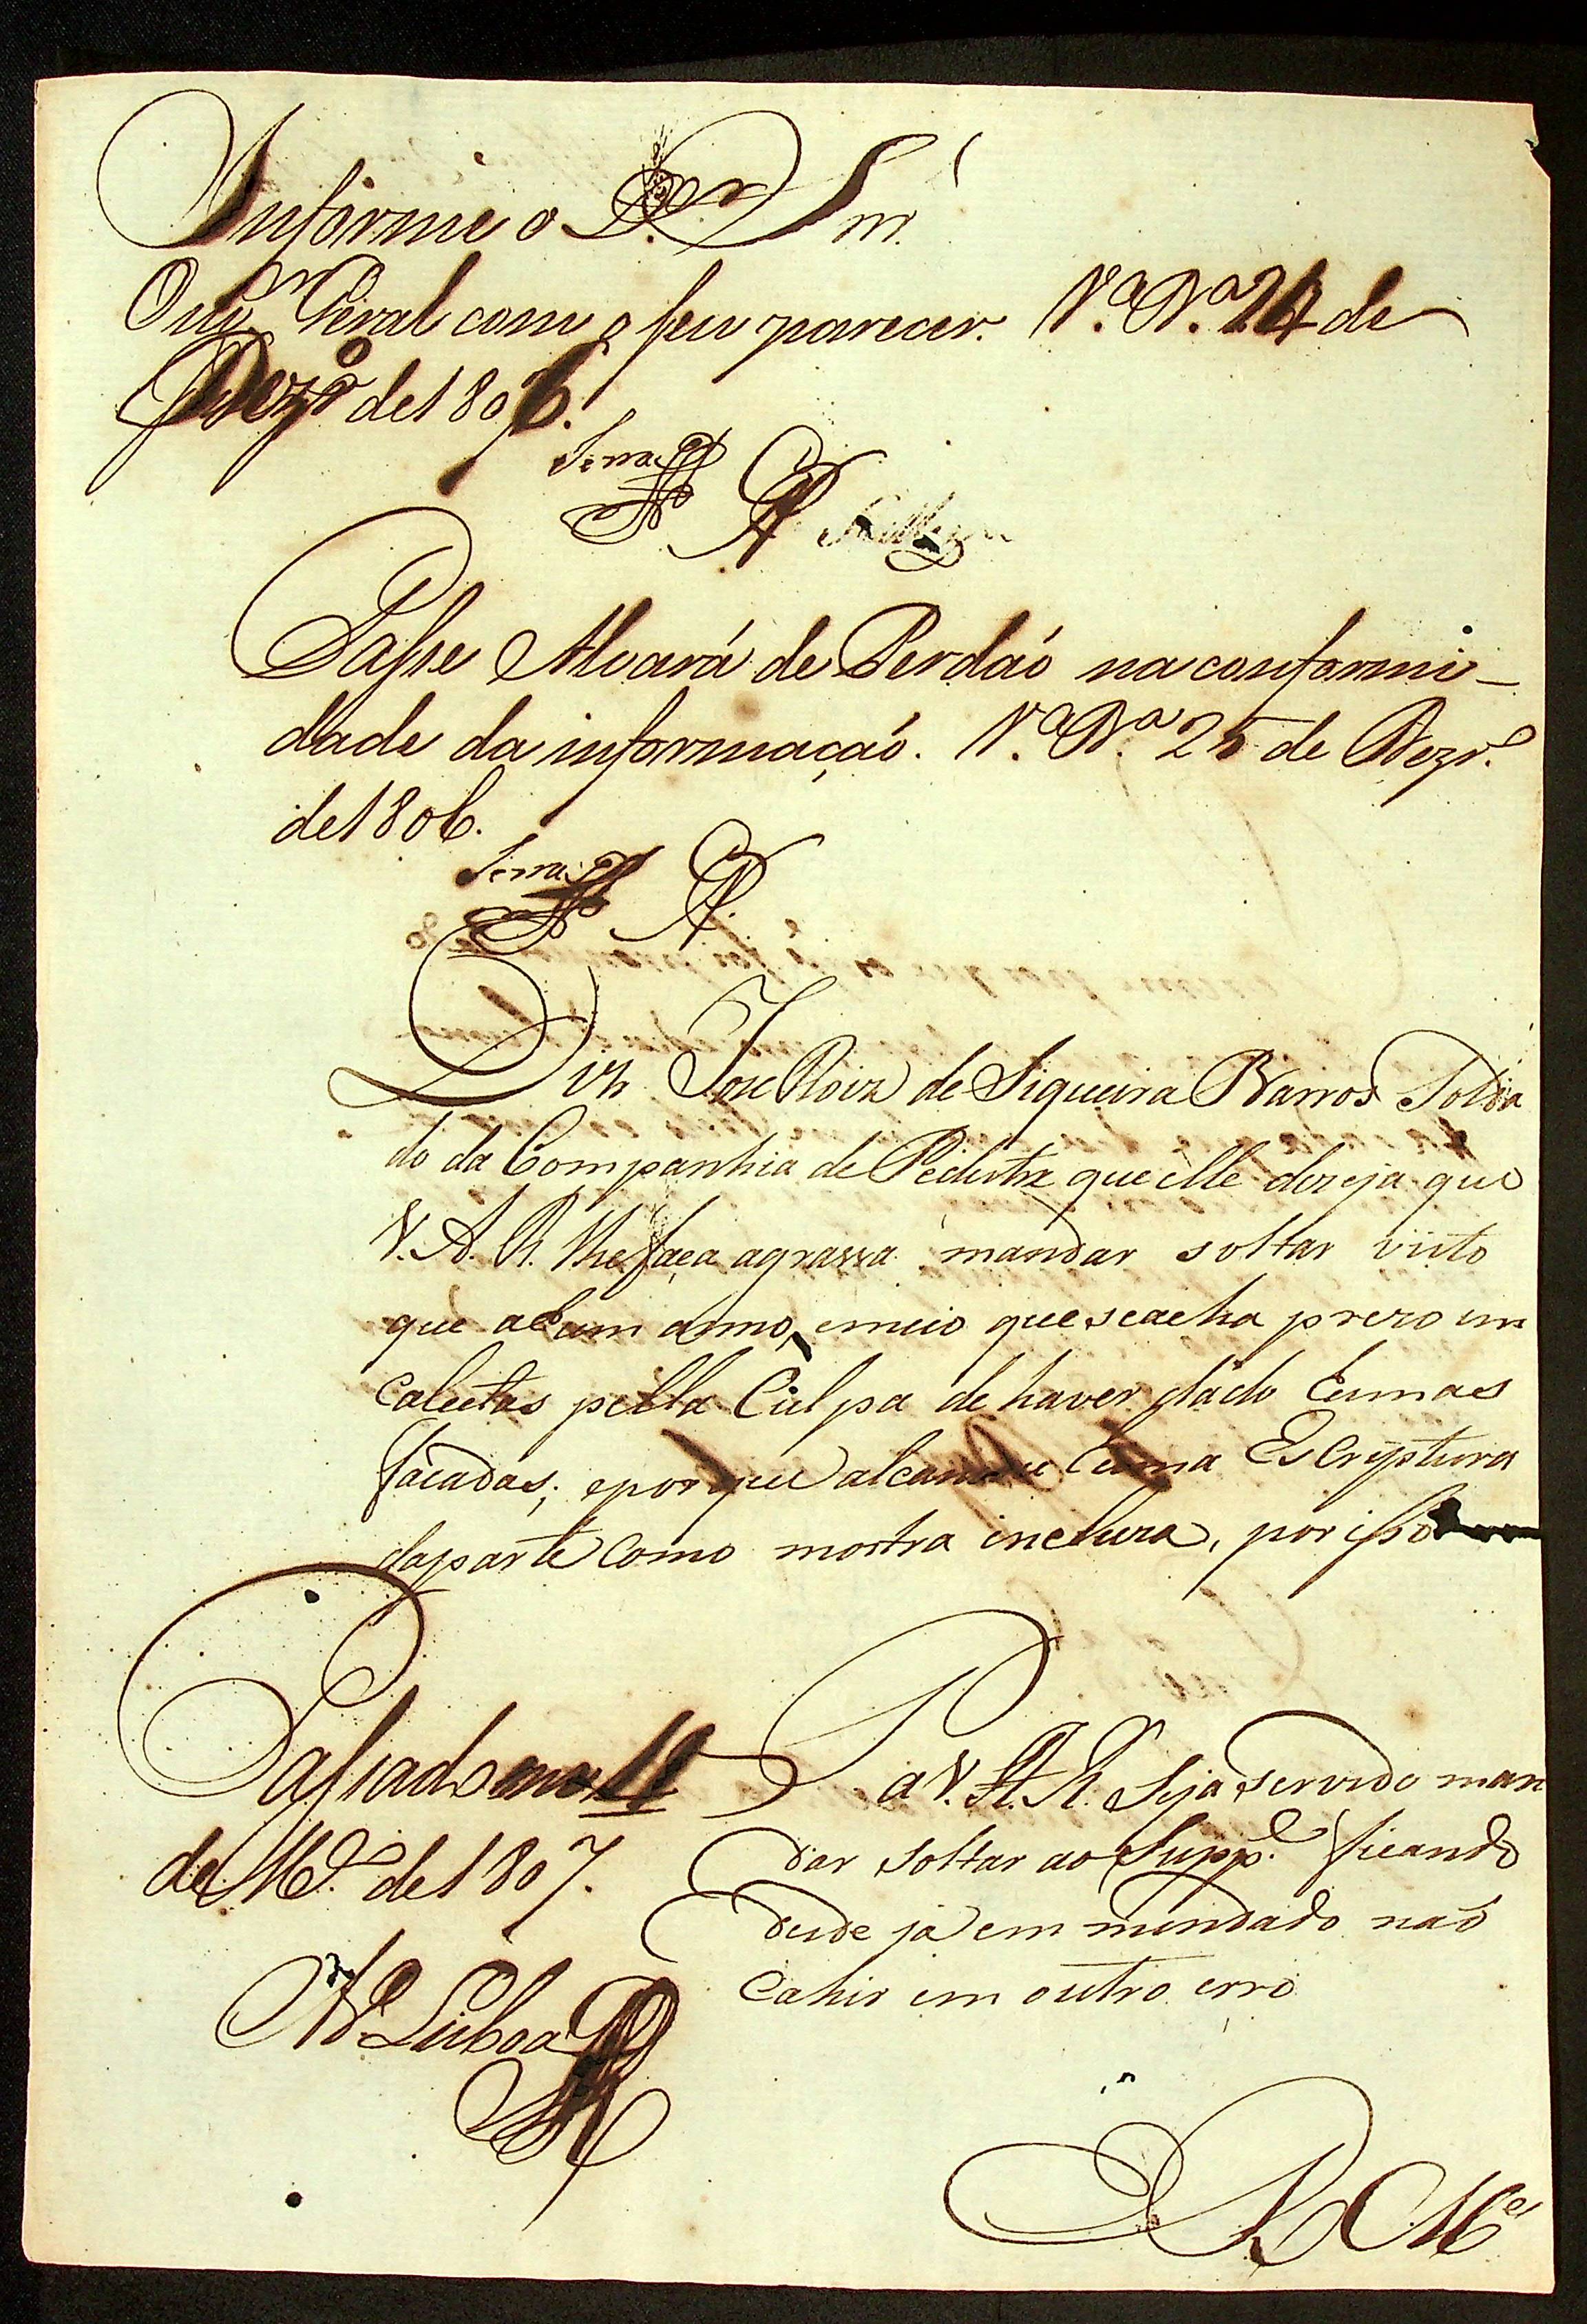 Informe o D.or Snr.
Ouv.or Geral com o seu parecer. V.a B.a 24 de
Dezr.o de 1806.
Passe Alvará de Perdaó na conformi-
dade da informaçaó. V.a B.a 25 de Dezr.o
de 1806.
Diz Joze Roiz de Siqueira Barros Solda
do da Companhia de Pedestre que elle dezeja que
V. A. R. lhe faça agrassa mandar soltar visto
que a hum anno, emeio que seacha prezo im
Calcetas pella Culpa de haver dado humas
facadas; eporque alcansou huma Escriptura
daparte Como mostra incluza, por isso
P
a V. A. R. Seja servido man
dar soltar ao Supp.e ficando
desde já em mendado naó
Cahir em outro erro
Passado em 11
de M.ço de 1807.
Lisboa
E R M.ce